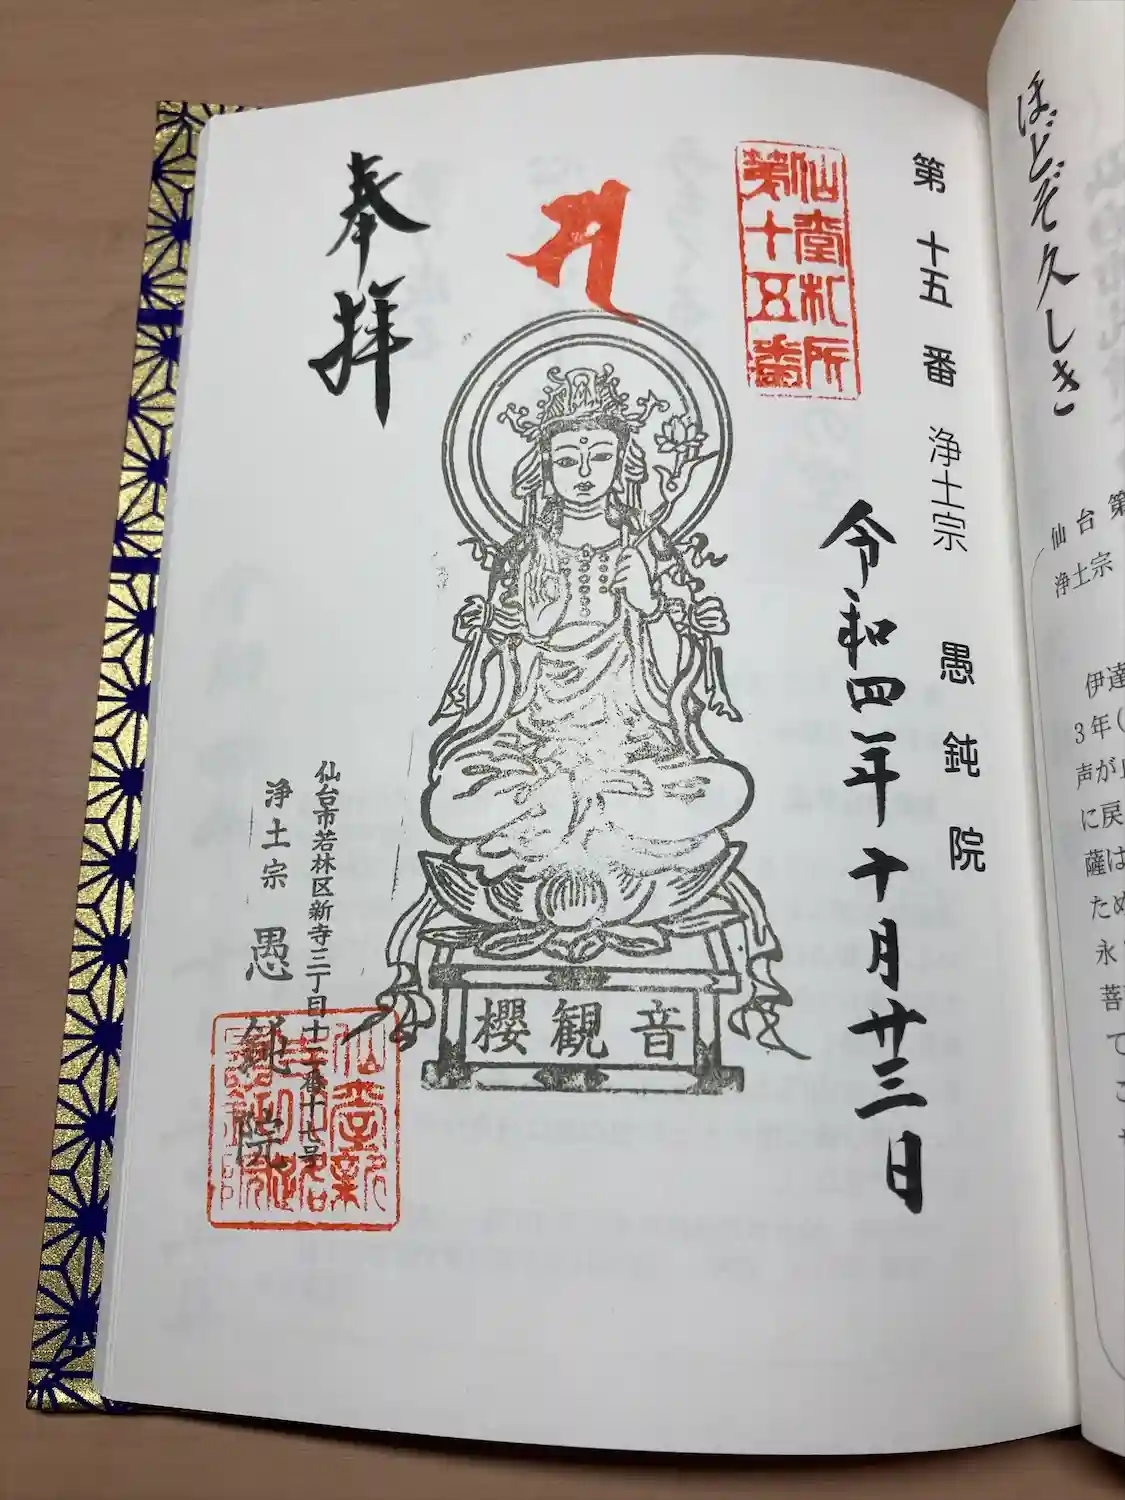 ほどぞ久しき
仙台第
浄土宗
伊達
3年(
声が
に戻
薩は
ため
永
菩
て
こ
第十五番 浄土宗 愚鈍院
仙臺札所
第十五番
令和四年十月廿三日
奉拝
櫻観音
仙台市若林区新寺三丁目十二番十七号
浄土宗 愚鈍院